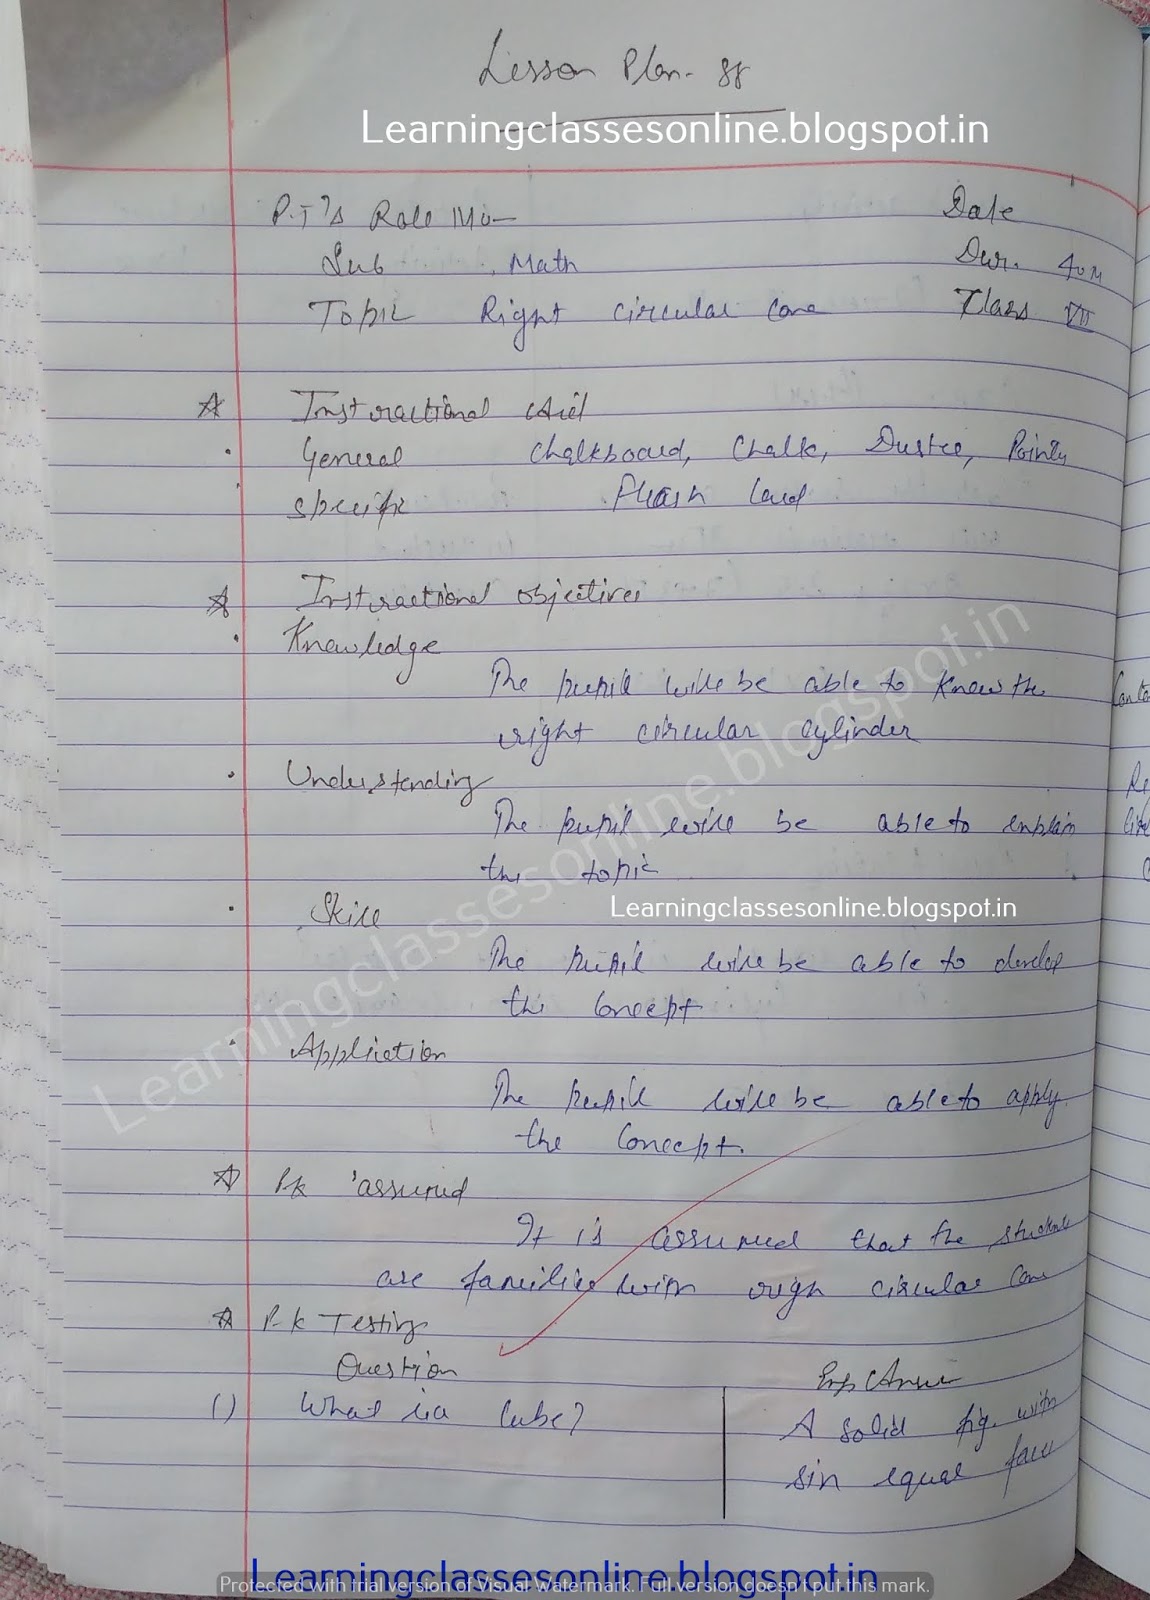 Lesson Plan - 38
Learningclassesonline.blogspot.in
P.T's Role No - Date
Sub Math Dur. 40 M
Topic Right circular cone Class VII
Instractional Aid
General Chalkboard, Chalk, Duster, Pointy
Specific Flash Card
Instractional objectives
Knowledge
The pupil will be able to know the
right circular cylinder
Understanding
The pupil will be able to explain
the topic
Skill
Learningclassesonline.blogspot.in
The pupil will be able to develop
the concept
Application
The pupil will be able to apply
the concept.
Learningclassesonline.blogspot.in
P.k assumed
It is assumed that the students
are familier with righ circular cone
P.k Testing
Question Exp Answer
(1) What is a cube? A solid fig. with
six equal face
Learningclassesonline.blogspot.in
Protected with trial version of Visual Watermark. Full version doesn't put this mark.